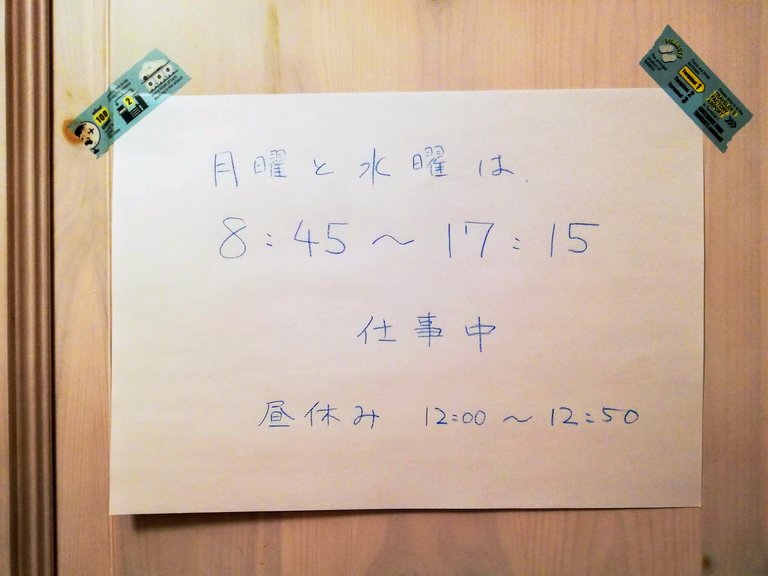 月曜と水曜は、
8:45〜17:15
仕事中
昼休み 12:00〜12:50